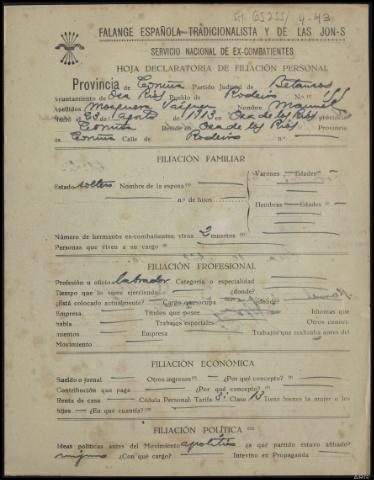 FALANGE ESPAÑOLA TRADICIONALISTA Y DE LAS JON-S
SERVICIO NACIONAL DE EX-COMBATIENTES
HOJA DECLARATORIA DE FILIACIÓN PERSONAL
Provincia de Coruña Partido Judicial de Betanzos
Ayuntamiento de Oza Ríos Pueblo de Rodeiro N.º
Apellidos Mosquera Nombre Manuel
Nació el 23 de Agosto de 1913 en Oza de los Ríos Provincia
de Coruña Reside en Oza de los Ríos Provincia
de Coruña Calle de Rodeiro
FILIACIÓN FAMILIAR
Varones Edades
Estado soltero Nombre de la esposa
n.º de hijos
Hembras Edades
Número de hermanos ex-combatientes, vivos 2 muertos
Personas que viven a su cargo
FILIACIÓN PROFESIONAL
Profesión u oficio labrador Categoría o especialidad
Tiempo que lo viene ejerciendo ¿donde?
¿Está colocado actualmente? Cargo que ocupa
Empresa Títulos que posee Idiomas que
habla Trabajos especiales Otros conoci-
mientos Empresa Trabajos que realizaba antes del
Movimiento
FILIACIÓN ECONÓMICA
Sueldo o jornal Otros ingresos ¿Por qué concepto?
Contribución que paga ¿Por qué concepto?
Renta de casa Cédula Personal: Tarifa 3ª Clase 13 Tiene bienes la mujer o los
hijos ¿En qué cuantía?
FILIACIÓN POLÍTICA
Ideas políticas antes del Movimiento apolítico ¿a qué partido estuvo afiliado?
ninguno ¿Con qué cargo? Intervino en Propaganda